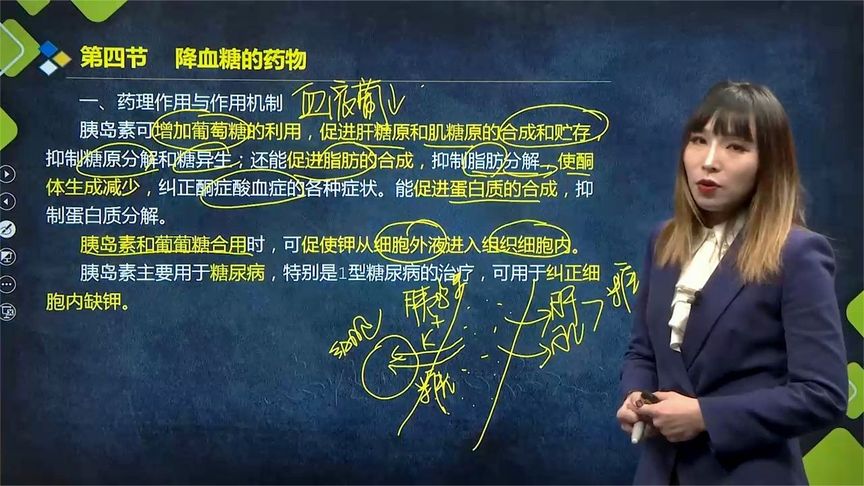 第四节 降血糖的药物
一、药理作用与作用机制 血液葡↓
胰岛素可增加葡萄糖的利用，促进肝糖原和肌糖原的合成和贮存，
抑制糖原分解和糖异生；还能促进脂肪的合成，抑制脂肪分解，使酮
体生成减少，纠正酮症酸血症的各种症状。能促进蛋白质的合成，抑
制蛋白质分解。
胰岛素和葡萄糖合用时，可促使钾从细胞外液进入组织细胞内。
胰岛素主要用于糖尿病，特别是1型糖尿病的治疗，可用于纠正细
胞内缺钾。
胰岛
+
K
细胞
糖
肝
肌